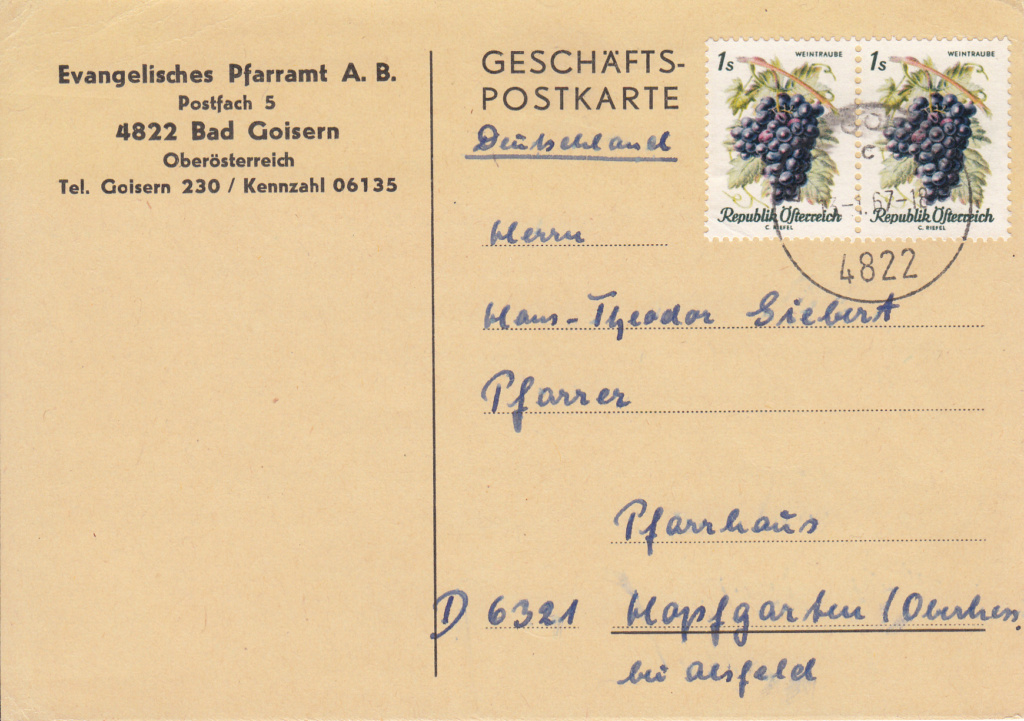 Evangelisches Pfarramt A. B.
Postfach 5
4822 Bad Goisern
Oberösterreich
Tel. Goisern 230 / Kennzahl 06135
GESCHÄFTS-
POSTKARTE
Deutschland
1s WEINTRAUBE
Republik Österreich
C. RIEFEL
1s WEINTRAUBE
Republik Österreich
C. RIEFEL
C
-1.67-18
4822
Herrn
Hans-Theodor Siebert
Pfarrer
Pfarrhaus
D 6321 Hopfgarten (Oberhess.
bei Alsfeld